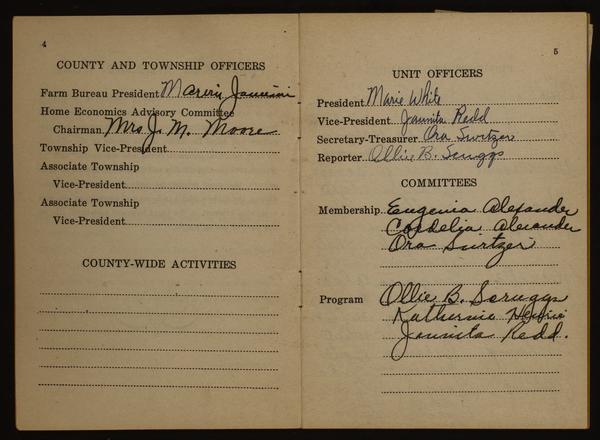 4
COUNTY AND TOWNSHIP OFFICERS
Farm Bureau President
Home Economics Advisory Committee
Chairman Mrs. J. M. Moore
Township Vice-President
Associate Township
Vice-President
Associate Township
Vice-President
COUNTY-WIDE ACTIVITIES
5
UNIT OFFICERS
President Marie White
Vice-President Jaunita Redd
Secretary-Treasurer Ora Switzer
Reporter Ollie B. Scruggs
COMMITTEES
Membership Eugenia Alexander
Cordelia Alexander
Ora Switzer
Program Ollie B. Scruggs
Katherine
Jaunita Redd.